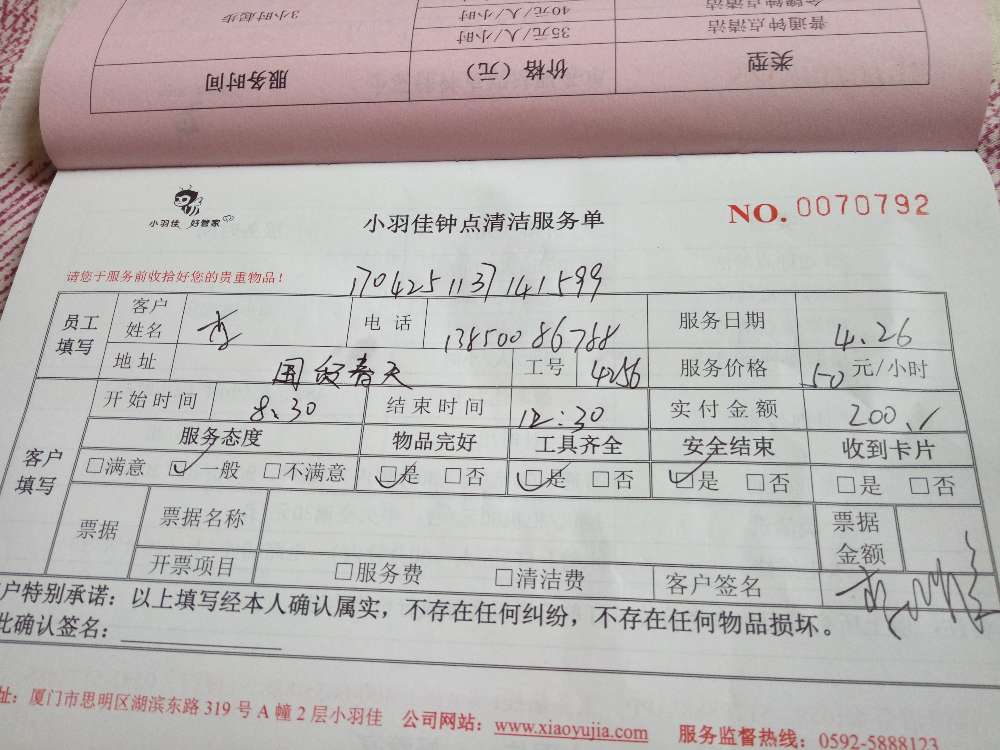 3小时起步 40元/人/小时 金牌钟点清洁
35元/人/小时 普通钟点清洁
服务时间 价格（元） 类型
小羽佳 好管家
小羽佳钟点清洁服务单
NO. 0070792
请您于服务前收拾好您的贵重物品！
170425113714 1599
员工填写 客户姓名 李 电话 13850086768 服务日期 4.26
地址 国贸春天 工号 4256 服务价格 50元/小时
客户填写 开始时间 8:30 结束时间 12:30 实付金额 200.
服务态度 物品完好 工具齐全 安全结束 收到卡片
□满意 □一般 □不满意 □是 □否 □是 □否 □是 □否 □是 □否
票据 票据名称 票据金额
开票项目 □服务费 □清洁费 客户签名
户特别承诺：以上填写经本人确认属实，不存在任何纠纷，不存在任何物品损坏。
此确认签名：
址：厦门市思明区湖滨东路 319 号 A 幢 2 层小羽佳 公司网站：www.xiaoyujia.com 服务监督热线：0592-5888123